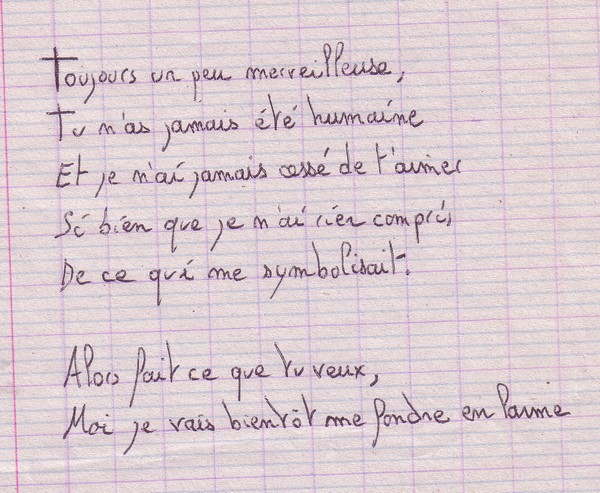 Toujours un peu merveilleuse,
Tu n'as jamais été humaine
Et je n'ai jamais cessé de t'aimer
Si bien que je n'ai rien compris
De ce qui me symbolisait.
Alors fait ce que tu veux,
Moi je vais bientôt me fondre en larme